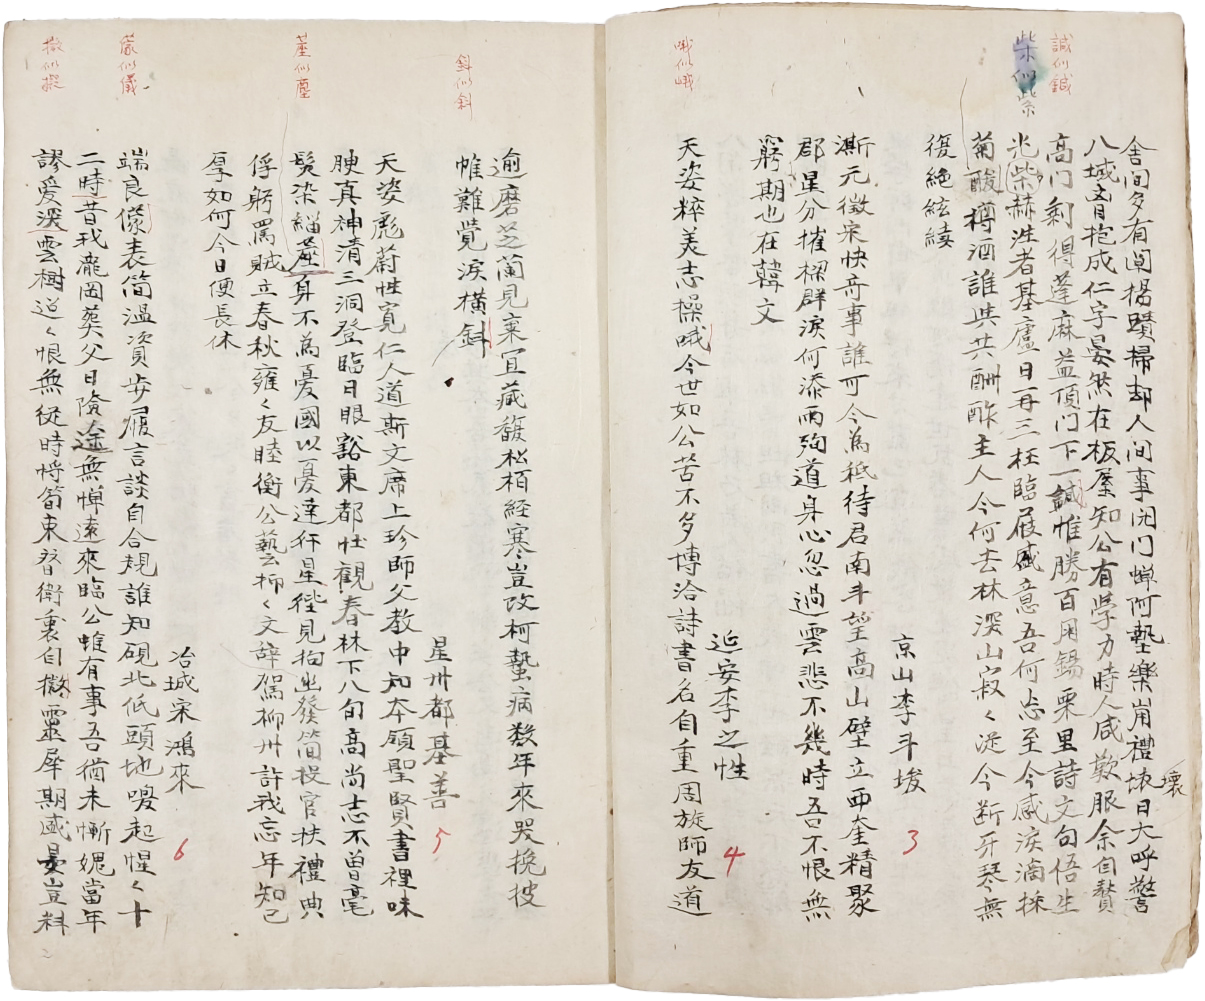 誠似鍼
柴似紫
哦似峨
舍間多有闃揚蹟掃却人間事閉門蟬阿塾樂崩禮壞日大呼警
壞
八域盲抱成仁字晏然在板屋知公有學力時人咸歎服余自贅
高門剩得蓬麻益頂門下一誠惟勝百用錫栗里詩文句悟生
光柴赫泄者基廬日再三枉臨屐盛意吾何忘至今感淚滴採
菊酸樽酒誰共共酬酢主人今何去林深山寂〻從今斷牙琴無
復絶絃緌
京山李斗埈
3
漸元徵宋快奇事誰可今爲秪待君南斗望高山壁立西奎精聚
郡星分摧樑群淚何添雨殉道身心忽過雲悲不幾時吾不恨無
窮期也在韓文
延安李之性
4
天姿粹美志操哦今世如公苦不多博洽詩書名自重周旋師友道
斜似斜
䕃似塵
儀
撒似擬
逾磨芝蘭見棄宜藏馥松栢經寒豈改柯蟄病數年來哭挽披
帷難覺淚橫斜
星州都基善
5
天姿彪蔚性寬仁人道斯文席上珍師父教中知本領聖賢書裡味
腴真神清三洞登臨日眼豁東都壯觀春林下八旬高尚志不曾毫
髮染緇塵身不爲憂國以憂達行星徑見拘幽發簡投官扶禮典
俘躬罵賊立春秋雍〻友睦衡公藝抑〻文辭駕柳州許我忘年知已
厚如何今日便長休
冶城宋鴻來
6
端良儀表簡溫資步履言談自合規誰知硯北低頭地喚起惺〻十
二時昔我瀧岡葬父日險途無憚遠來臨公帷有事吾猶未慚媿當年
謬愛深雲樹迢〻恨無從時將荀東替衡裏自撒靈犀期感晏豈料